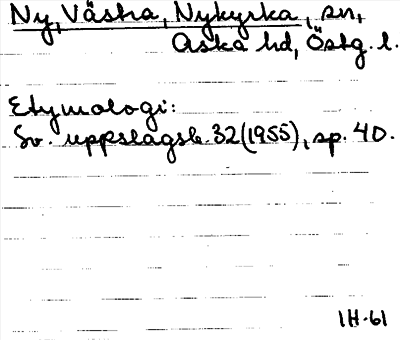 Ny, Västra, Nykyrka, sn,
Aska hd, Östg. l.
Etymologi:
Sv. uppslagsb. 32 (1955), sp. 40.
IH-61